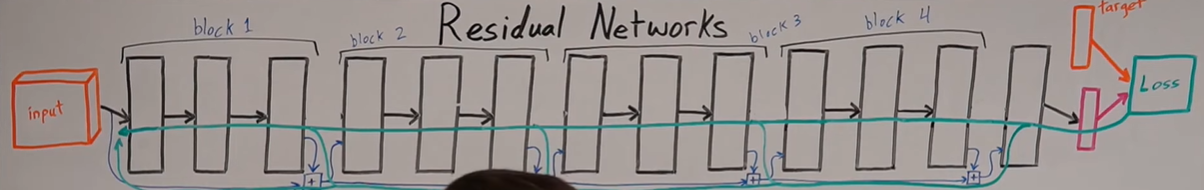 Residual Networks
block 1
block 2
block 3
block 4
target
input
Loss
+
+
+